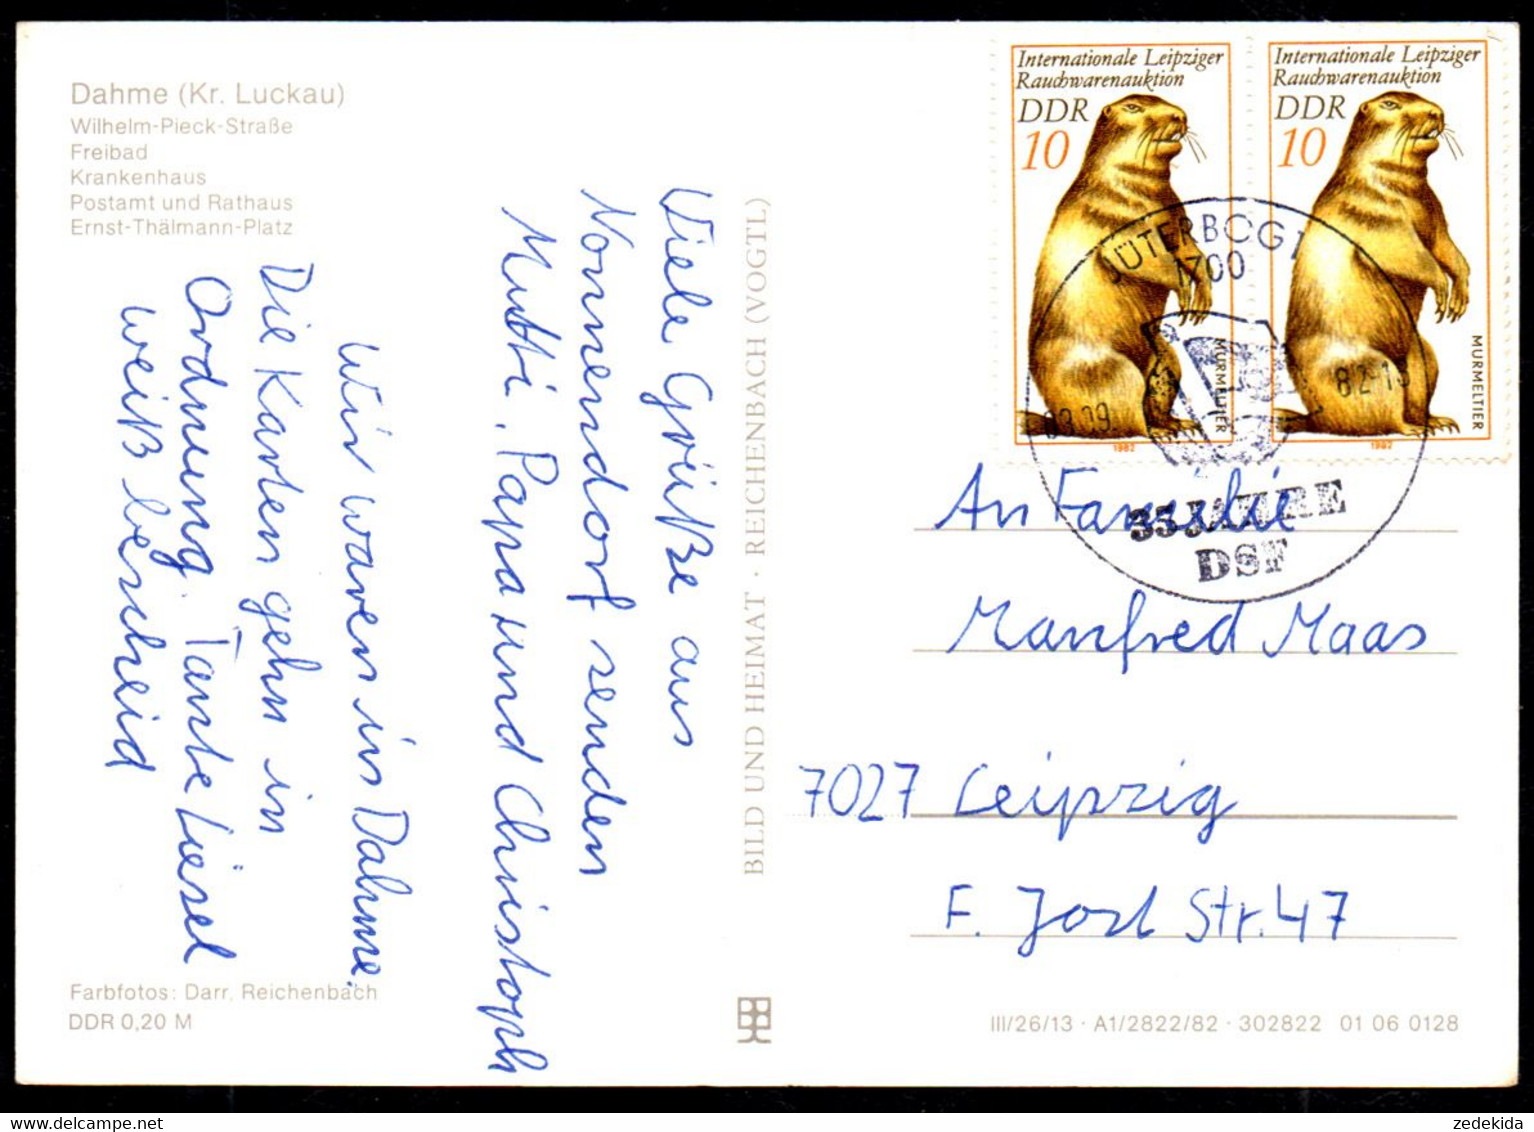 Dahme (Kr. Luckau)
Wilhelm-Pieck-Straße
Freibad
Krankenhaus
Postamt und Rathaus
Ernst-Thälmann-Platz
Viele Grüße aus
Nonnendorf senden
Mutti, Papa und Christoph
Wir waren in Dahme.
Die Karten gehn in
Ordnung. Tante Liesel
weiß bescheid
Farbfotos: Darr, Reichenbach
DDR 0,20 M
BILD UND HEIMAT · REICHENBACH (VOGTL)
Internationale Leipziger
Rauchwarenauktion
DDR
10
MURMELTIER
1982
Internationale Leipziger
Rauchwarenauktion
DDR
10
MURMELTIER
1982
JÜTERBOG 1
1700
03.09. 82-
35 JAHRE
DSF
An Familie
Manfred Maas
7027 Leipzig
F. Jost Str. 47
III/26/13 · A1/2822/82 · 302822 01 06 0128
zedekida